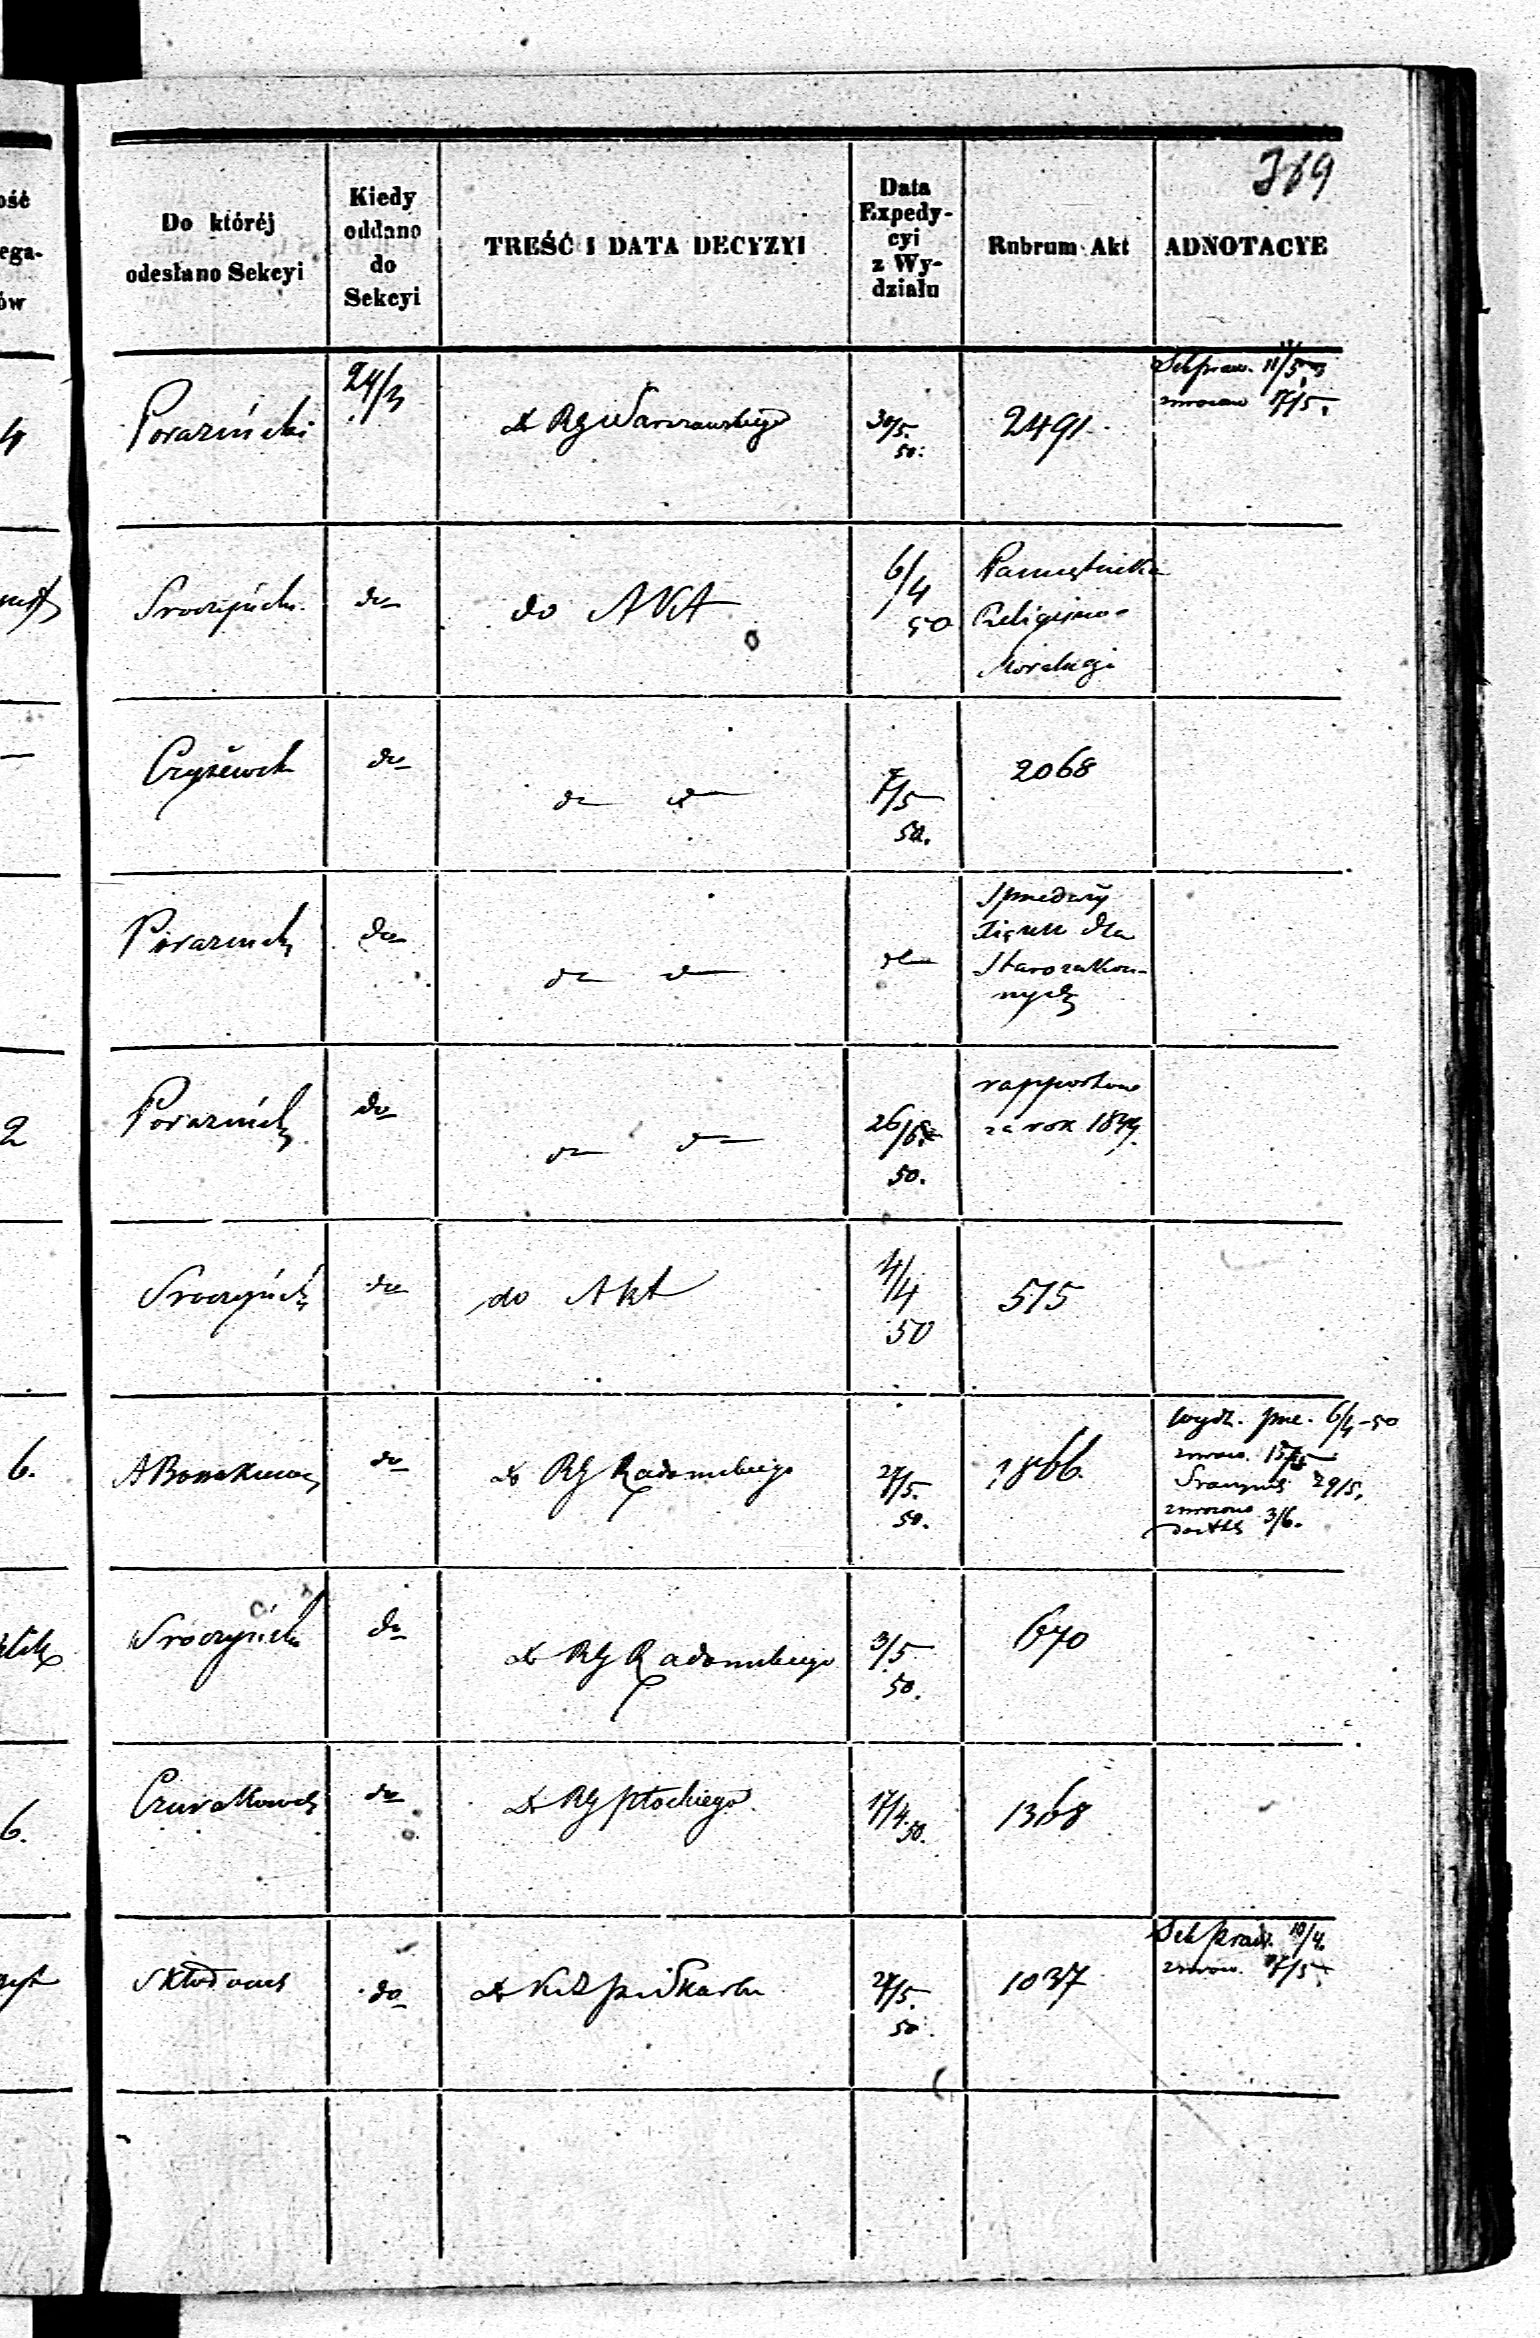 319
ość
ega-
ów
Do któréj
odesłano Sekcyi
Kiedy
oddano
do
Sekcyi
TREŚĆ I DATA DECYZYI
Data
Expedy-
cyi
z Wy-
działu
Rubrum Akt
ADNOTACYE
4
Poraziński
24/3
do RG Warszawskiego
30/5.
50.
2491.
zwrócono 17/5.
Sroczyński
do
do AKt
6/4
50
Pamiętnika
Religijno-
Moralnego
Czyżewsk
do
do do
7/5
50.
2068
Porazińsk
do
do do
do
Sprzedaży
Xiążek dla
Starozakon-
nych
2
Porazińsk
do
do do
26/6
50.
rapportów
za rok 1849.
Sroczyński
do
do Akt
4/4
50
515
6.
do
do RG Radomskiego
27/5.
50.
1866.
Wydz. 6/4-50
zwróc. 15/5
Sroczyńsk 29/5.
zwrócono
do Akt 3/6.
Sroczyński
do
do RG Radomskiego
3/5
50.
670
6.
do
do RG Płockiego
17/4.
50.
1368
Skłodowsk
do
27/5.
50.
1037
Sek Praw. 10/4
zwróc. 17/5